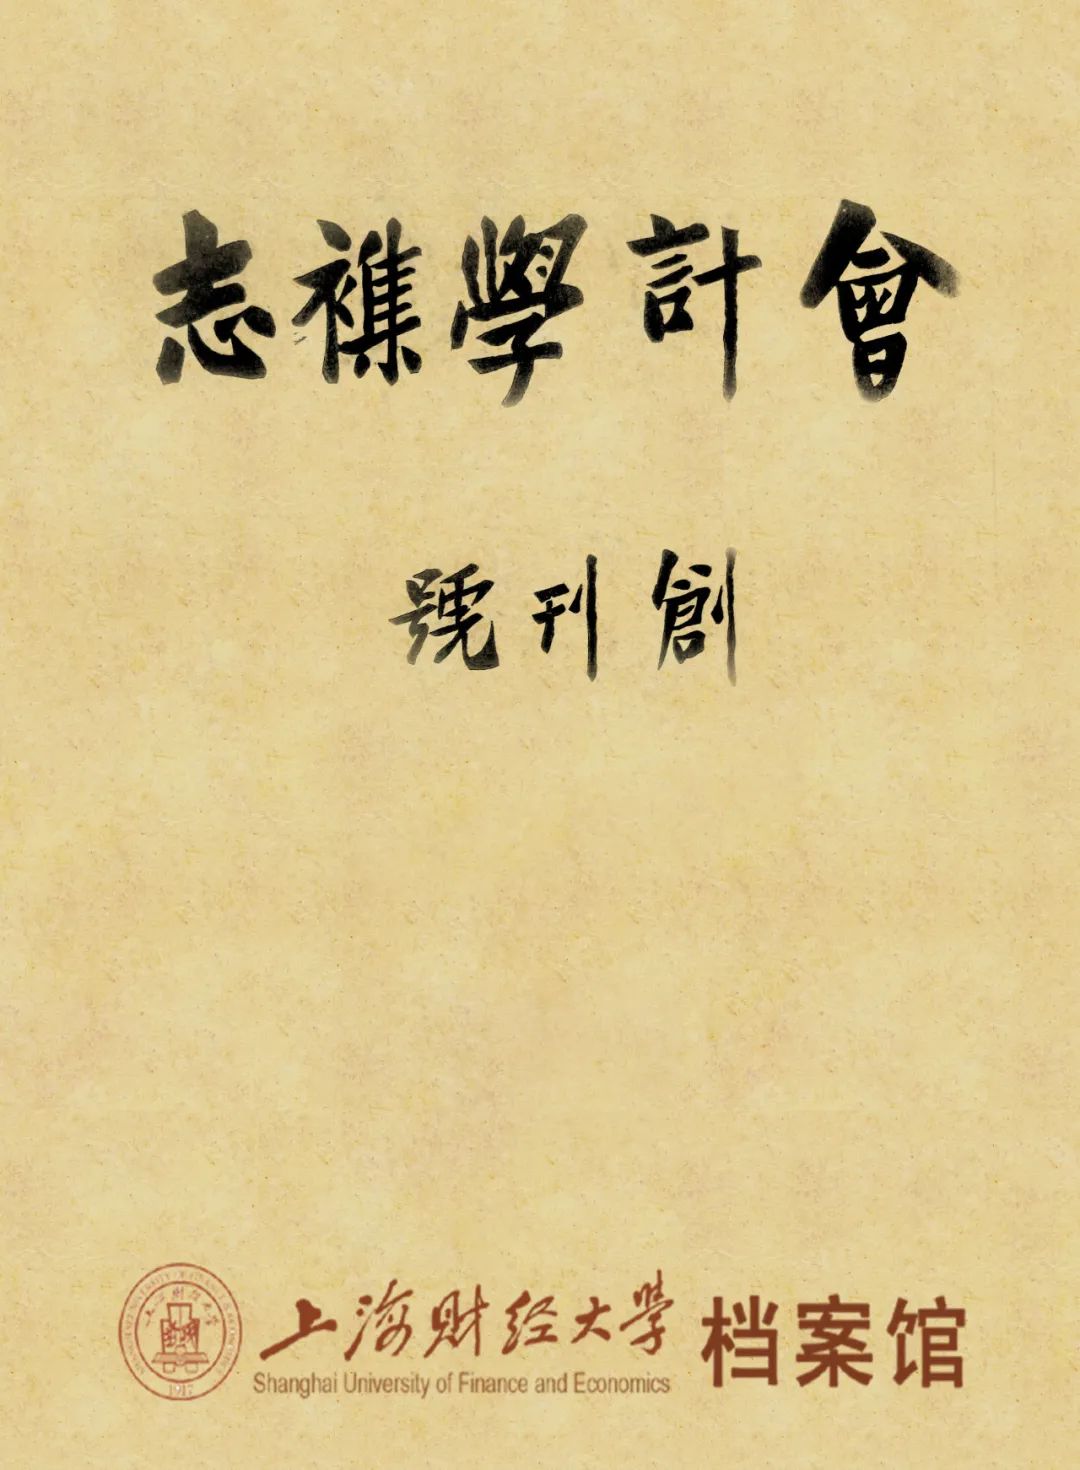 會計學襍志
創刊號
上海财经大学 档案馆
Shanghai University of Finance and Economics
1917